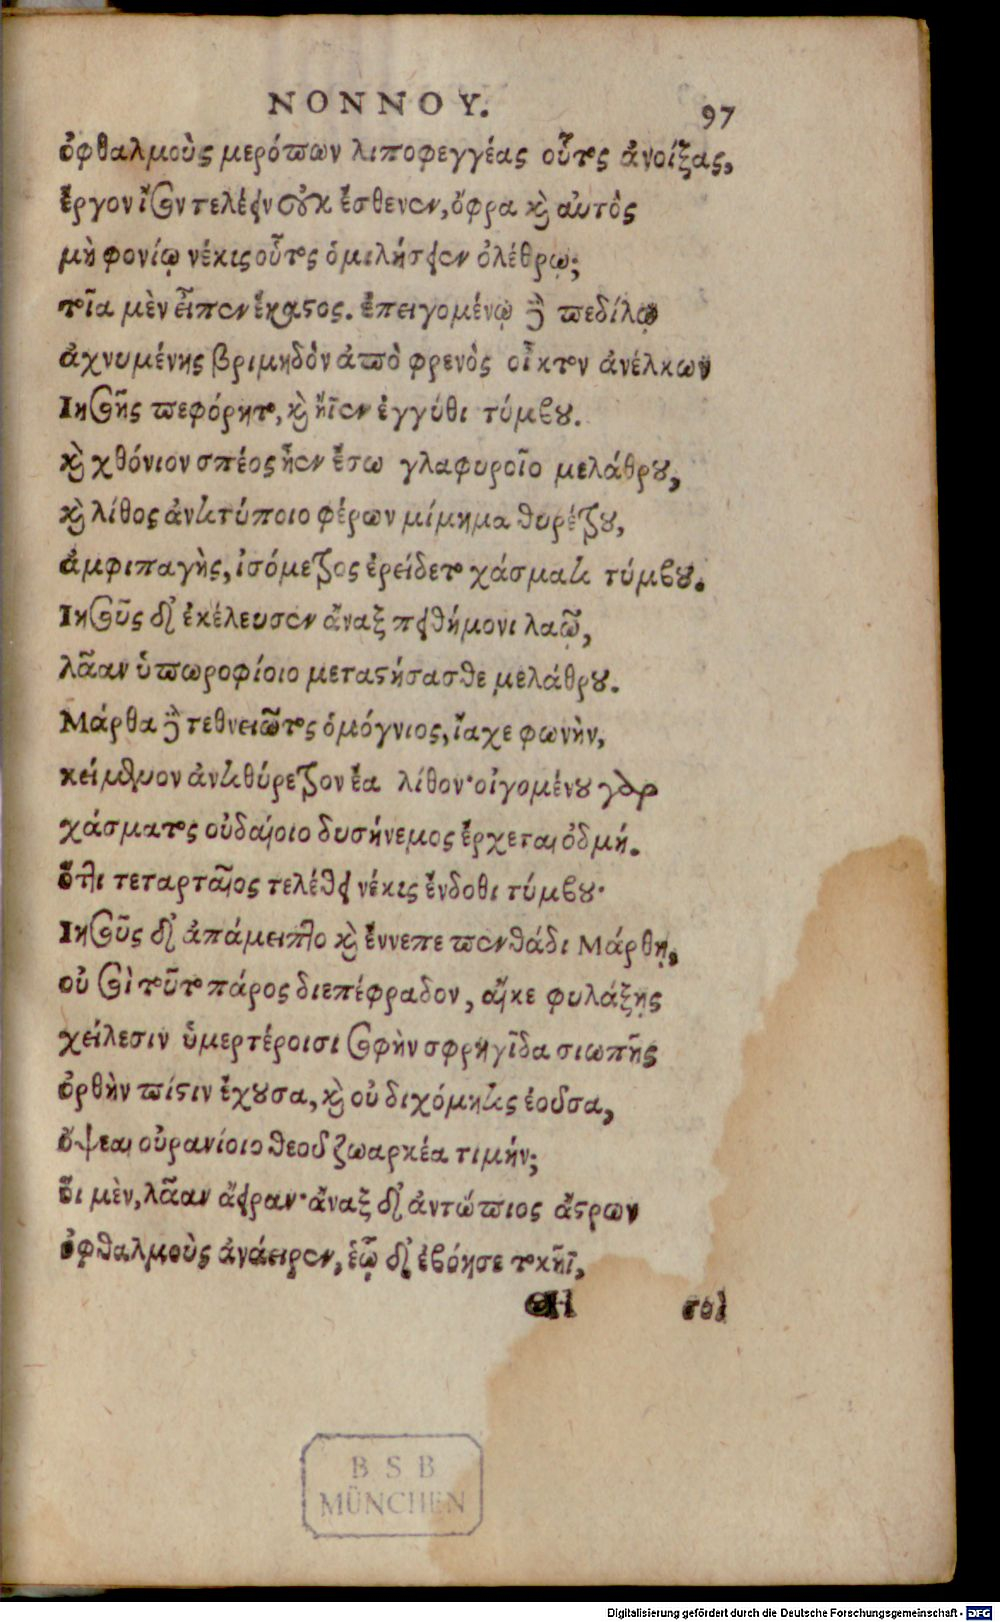 ΝΟΝΝΟΥ.
97
ὀφθαλμοὺς μερόπων λιποφεγγέας οὗτος ἀνοίξας,
ἔργον ἴσον τελέειν οὐκ ἔσθενεν, ὄφρα καὶ αὐτὸς
μὴ φονίῳ νέκυς οὗτος ὁμιλήσειεν ὀλέθρῳ;
τοῖα μὲν εἶπεν ἕκαστος. ἐπειγομένῳ δὲ πεδίλῳ
ἀχνυμένης βριμηδὸν ἀπὸ φρενὸς οἶκτον ἀνέλκων
Ἰησοῦς πεφόρητο, καὶ ἤϊεν ἐγγύθι τύμβου.
καὶ χθόνιον σπέος ἦεν ἔσω γλαφυροῖο μελάθρου,
καὶ λίθος ἀντιτύποιο φέρων μίμημα θυρέτρου,
ἀμφιπαγὴς, ἰσόμετρος ἐρείδετο χάσματι τύμβου.
Ἰησοῦς δ' ἐκέλευσεν ἄναξ πειθήμονι λαῷ,
λᾶαν ὑπωροφίοιο μεταστήσασθε μελάθρου.
Μάρθα δὲ τεθνειῶτος ὁμόγνιος, ἴαχε φωνὴν,
κείμενον ἀντιθύρετρον ἔα λίθον· οἰγομένου γὰρ
χάσματος οὐδαίοιο δυσήνεμος ἔρχεται ὀδμή.
ὅττι τεταρταῖος τελέθει νέκυς ἔνδοθι τύμβου·
Ἰησοῦς δ' ἀπάμειπτο καὶ ἔννεπε πενθάδι Μάρθῃ,
οὐ σοὶ τοῦτο πάρος διεπέφραδον, αἴκε φυλάξῃς
χείλεσιν ὑμετέροισι σοφὴν σφρηγῖδα σιωπῆς
ὀρθὴν πίστιν ἔχουσα, καὶ οὐ διχόμητις ἐοῦσα,
ὄψεαι οὐρανίοιο θεοῦ ζωαρκέα τιμήν;
οἳ μὲν, λᾶαν ἄειραν· ἄναξ δ' ἀντώπιος ἄστρων
ὀφθαλμοὺς ἀνάειρεν, ἑῷ δ' ἐβόησε τοκῆϊ,
σοὶ
BSB
MÜNCHEN
Digitalisierung gefördert durch die Deutsche Forschungsgemeinschaft - DFG